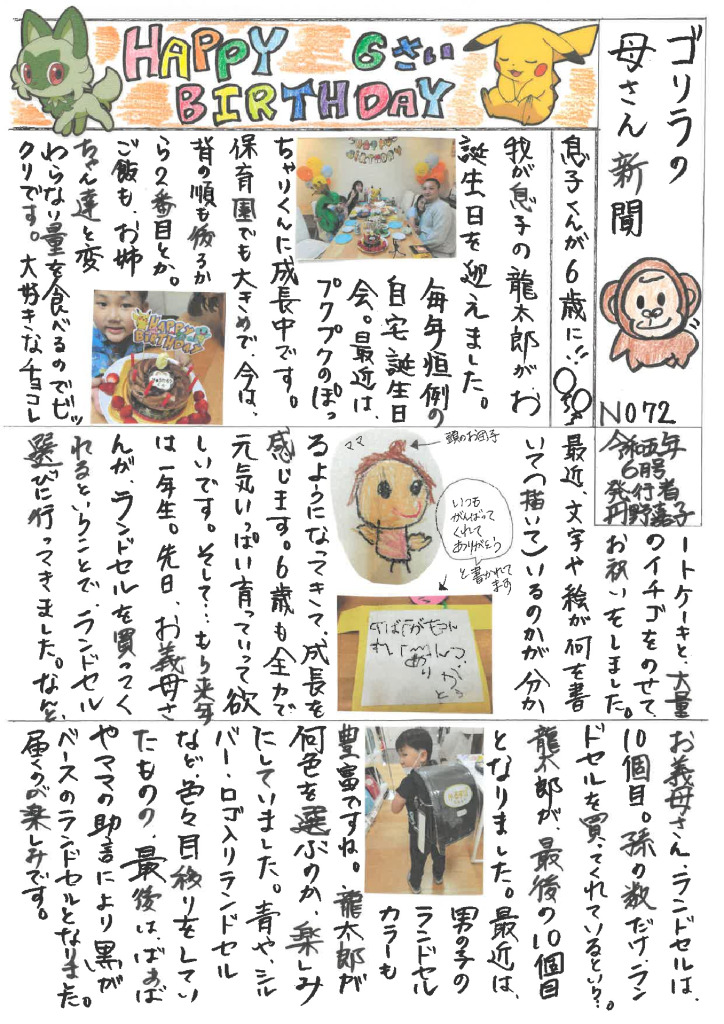 HAPPY 6さい
BIRTHDAY
ゴリラの
母さん新聞
NO72
令和五年
6月号
発行者
丹野嘉子
息子くんが6歳に!!
我が息子の龍太郎が、お
誕生日を迎えました。
毎年恒例の
自宅誕生日
会。最近は、
プクプクのぽっ
ちゃりくんに成長中です。
保育園でも大きめで今は、
背の順も後ろか
ら2番目とか。
ご飯も、お姉
ちゃん達と変
わらない量を食べるのでビッ
クリです。大好きなチョコレ
HAPPY
BIRTHDAY
ートケーキと、大量
のイチゴをのせて、
お祝いをしました。
最近、文字や絵が何を書
いて(描いて)いるのかが分か
るようになってきて、成長を
感じます。6歳も全力で
元気いっぱい育っていって欲
しいです。そして…もう来年
は一年生。先日、お義母さ
んが、ランドセルを買ってく
れるということで、ランドセル
選びに行ってきました。なんと、
ママ
頭のお団子
いつも
がんばって
くれて
ありがとう
と書かれて
ます
お義母さん、ランドセルは、
10個目。孫の数だけ、ラン
ドセルを買ってくれているという?。
龍太郎が、最後の10個目
となりました。最近は、
男の子の
ランドセル
カラーも
豊富ですね。龍太郎が
何色を選ぶのか、楽しみ
にしていました。青や、シル
バー・ロゴ入りランドセル
など、色々目移りをしてい
たものの、最後は、ばぁば
やママの助言により黒が
ベースのランドセルとなりました。
届くのが楽しみです。